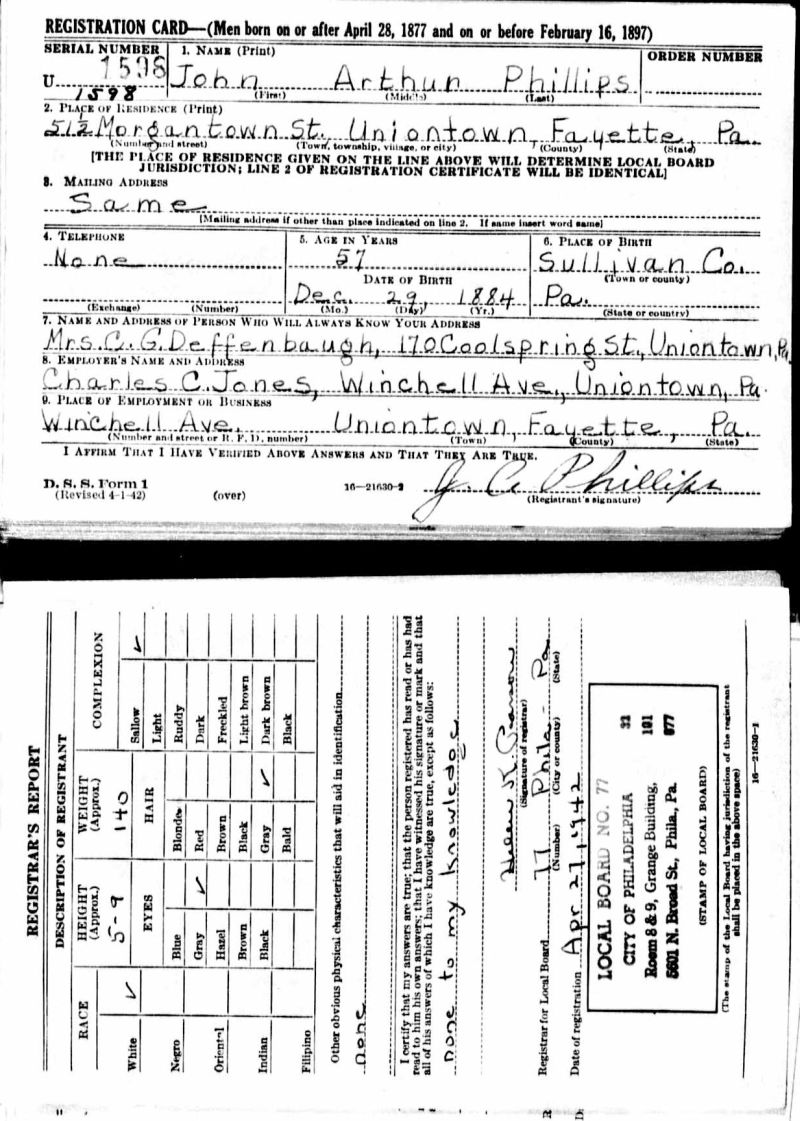 REGISTRATION CARD—(Men born on or after April 28, 1877 and on or before February 16, 1897)
SERIAL NUMBER 1. NAME (Print) ORDER NUMBER
1598
U 1598 John Arthur Phillips
(First) (Middle) (Last)
2. PLACE OF RESIDENCE (Print)
51½ Morgantown St., Uniontown, Fayette, Pa.
(Number and street) (Town, township, village, or city) (County) (State)
[THE PLACE OF RESIDENCE GIVEN ON THE LINE ABOVE WILL DETERMINE LOCAL BOARD
JURISDICTION; LINE 2 OF REGISTRATION CERTIFICATE WILL BE IDENTICAL]
3. MAILING ADDRESS
Same
[Mailing address if other than place indicated on line 2. If same insert word same]
4. TELEPHONE 5. AGE IN YEARS 6. PLACE OF BIRTH
None 57 Sullivan Co.
DATE OF BIRTH (Town or county)
Dec. 29, 1884 Pa.
(Exchange) (Number) (Mo.) (Day) (Yr.) (State or country)
7. NAME AND ADDRESS OF PERSON WHO WILL ALWAYS KNOW YOUR ADDRESS
Mrs. C. G. Deffenbaugh, 170 Coolspring St., Uniontown, Pa.
8. EMPLOYER'S NAME AND ADDRESS
Charles C. Jones, Winchell Ave., Uniontown, Pa.
9. PLACE OF EMPLOYMENT OR BUSINESS
Winchell Ave. Uniontown, Fayette, Pa.
(Number and street or R. F. D. number) (Town) (County) (State)
I AFFIRM THAT I HAVE VERIFIED ABOVE ANSWERS AND THAT THEY ARE TRUE.
D. S. S. Form 1
(Revised 4-1-42) (over) 16—21630-2 J. A. Phillips
(Registrant's signature)
REGISTRAR'S REPORT
DESCRIPTION OF REGISTRANT
RACE HEIGHT (Approx.) WEIGHT (Approx.) COMPLEXION
5-9 140
White ✓ EYES HAIR Sallow ✓
Light
Negro Blue Blonde Ruddy
Gray ✓ Red Dark
Oriental Hazel Brown Freckled
Brown Black Light brown
Indian Black Gray ✓ Dark brown
Bald Black
Filipino
Other obvious physical characteristics that will aid in identification
none
I certify that my answers are true; that the person registered has read or has had
read to him his own answers; that I have witnessed his signature or mark and that
all of his answers of which I have knowledge are true, except as follows:
none to my knowledge
(Signature of registrar)
Registrar for Local Board 77 Phila - Pa
(Number) (City or county) (State)
Date of registration Apr 27, 1942
LOCAL BOARD NO. 77 32
CITY OF PHILADELPHIA 101
Room 8 & 9, Grange Building, 077
5601 N. Broad St., Phila., Pa.
(STAMP OF LOCAL BOARD)
(The stamp of the Local Board having jurisdiction of the registrant
shall be placed in the above space)
16—21630-1